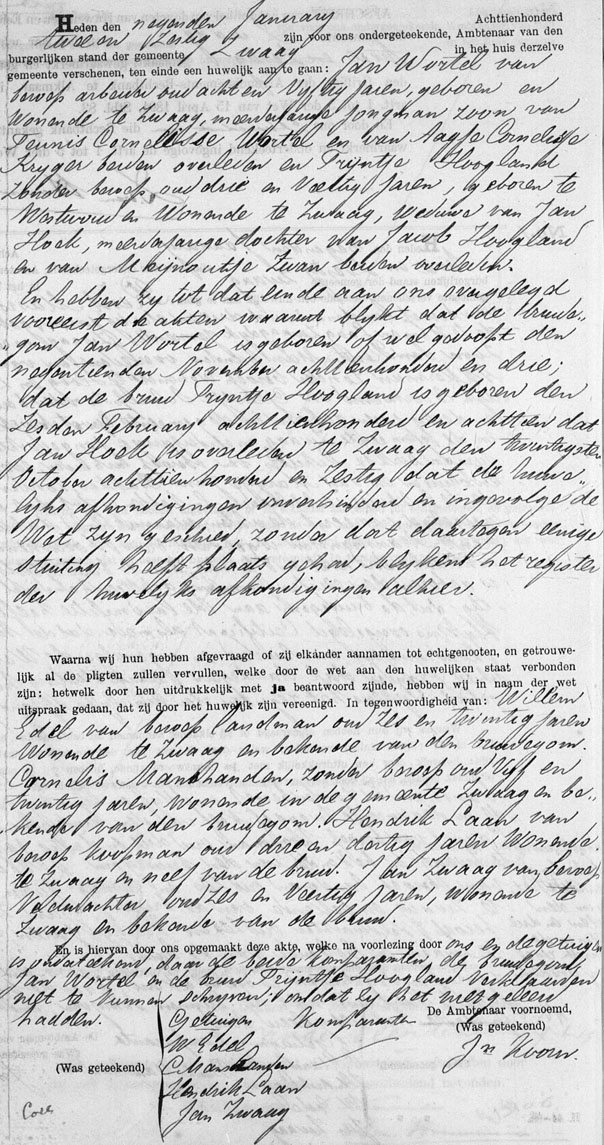 Heden den negenden January Achttienhonderd
twee en Zestig zijn voor ons ondergeteekende, Ambtenaar van den
burgerlijken stand der gemeente Zwaag in het huis derzelve
gemeente verschenen, ten einde een huwelijk aan te gaan: Jan Wortel van
beroep arbeider oud achten Vyftig jaren, geboren en
Wonende te Zwaag, meerderjarige jongman zoon van
Teunis Cornelisse, Wortel en van Aagje Cornelisse
Kryger beiden overleden en Tryntje Hoogland
Zonder beroep oud drie en Veertig Jaren, geboren te
en Wonende te Zwaag, Weduwe van Jan
Hoek, meerderjarige dochter van Jacob Hoogland
en van Meijnoutje Zwan beiden overleden.
En hebben zy tot dat einde aan ons overgelegd
vooreerst de akten waaruit blykt dat de bruide-
"gom Jan Wortel is geboren of wel gedoopt den
negentienden November achttienhonderd en drie;
dat de bruid Tryntje Hoogland is geboren den
Zesden February achttienhonderd en achttien dat
Jan Hoek is overleden te Zwaag den twentigsten
October achttienhonderd en Zestig dat de huwe-
lyks afkondigingen onverhinderd en ingevolge de
Wet zyn geschied, zonder dat daartegen eenige
stuiting heeft plaats gehad, blykens het register
der huwelyks afkondigingen alhier.
Waarna wij hun hebben afgevraagd of zij elkander aannamen tot echtgenooten, en getrouwe-
lijk al de pligten zullen vervullen, welke door de wet aan den huwelijken staat verbonden
zijn: hetwelk door hen uitdrukkelijk met ja beantwoord zijnde, hebben wij in naam der wet
uitspraak gedaan, dat zij door het huwelijk zijn vereenigd. In tegenwoordigheid van: Willem
Edel van beroep landman oud Zes en twintig jaren
Wonende te Zwaag en bekende van den bruidegom.
Cornelis Manshanden, zonder beroep oud Vyf en
twintig jaren, wonende in de gemeente Zwaag en be-
kende van den bruidegom. Hendrik Laan van
beroep koopman oud drie en dertig Jaren Wonende
te Zwaag en neef van de bruid. Jan Zwaag van beroep
Veldwachter oud Zes en Veertig Jaren, wonende te
Zwaag en bekende van de bruid.
En is hiervan door ons opgemaakt deze akte, welke na voorlezing door ons en de getuigen
is onderteekend, daar de beide komparanten, de bruidegom
Jan Wortel en de bruid Tryntje Hoogland Verklaarden
niet te kunnen schryven, omdat zy het niet geleerd
hadden.
Getuigen Komparanten De Ambtenaar voornoemd,
W Edel (Was geteekend)
(Was geteekend) C Manshanden Jn Koorn.
Hendrik Laan
Jan Zwaag